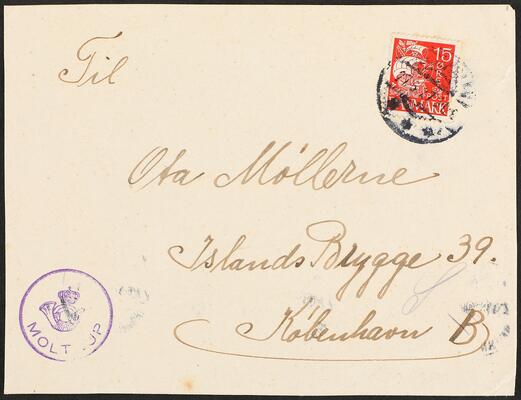 Til
15
MARK
Ota Møllerne
Islands Brygge 39.
København B
MOLT UP